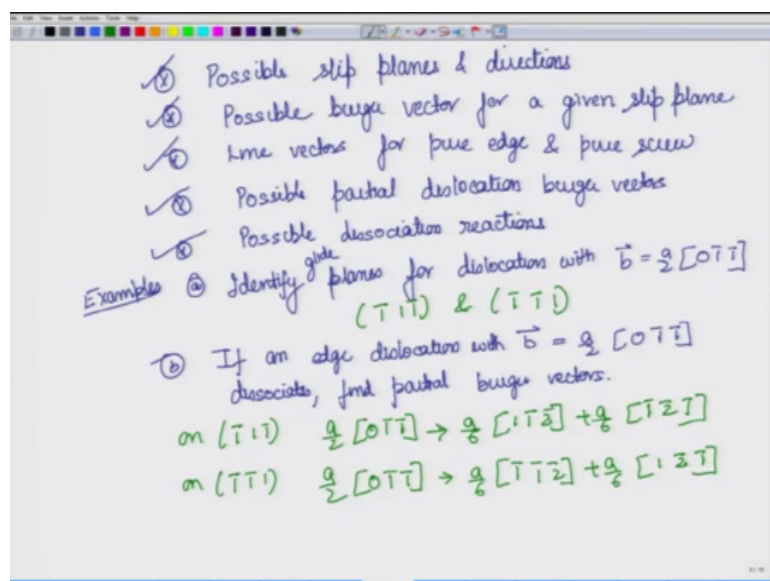 Possible slip planes & directions
Possible burger vector for a given slip plane
Line vectors for pure edge & pure screw
Possible partial dislocation burger vectors
Possible dissociation reactions
Examples ⓐ Identify glide planes for dislocation with b⃗ = a/2 [0 1̄ 1̄]
(1̄ 1 1̄) & (1̄ 1̄ 1)
ⓑ If an edge dislocation with b⃗ = a/2 [0 1̄ 1̄]
dissociates, find partial burger vectors.
on (1̄ 1 1̄) a/2 [0 1̄ 1̄] → a/6 [1 1̄ 2̄] + a/6 [1̄ 2̄ 1̄]
on (1̄ 1̄ 1) a/2 [0 1̄ 1̄] → a/6 [1̄ 1̄ 2̄] + a/6 [1 2̄ 1̄]